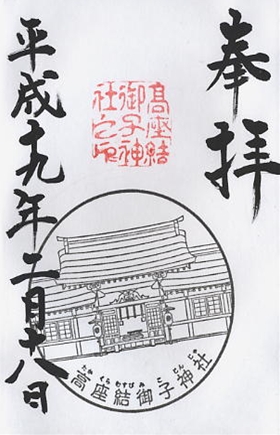 奉拝
髙座結
御子神
社之印
平成十九年二月十八日
高座結御子神社
くら むすび み こ じん じゃ